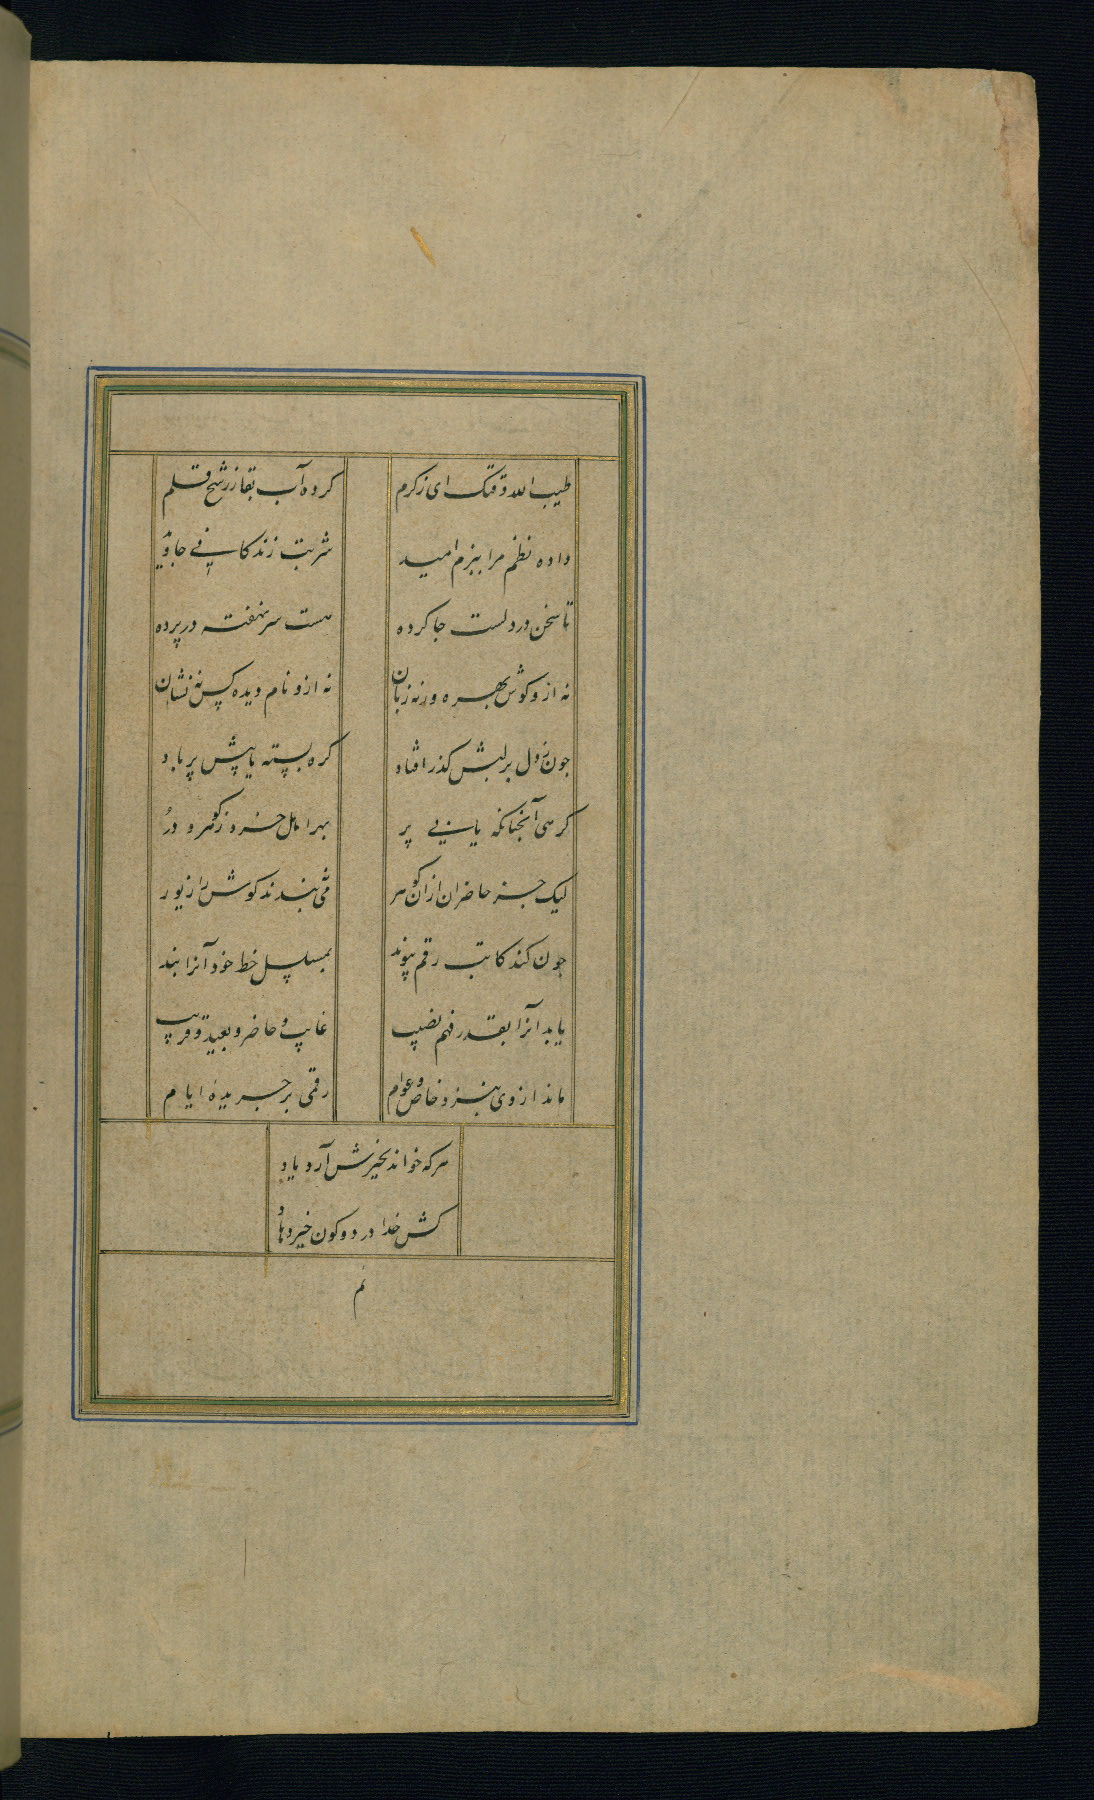 طیب الله وقتک ای ز کرم کرده آب بقا ز رشح قلم
داده نظم مرا ببزم امید شربت زندکانی جاوید
تا سخن در دلست جا کرده هست سر نهفته در پرده
نه ازو کوش بهره ور نه زبان نه ازو نام دیده کس نه نشان
چون ز دل بر لبش کذر افتاد کره بسته یابیش بر باد
کر همی آنچنانکه یابی پر بهر اهل خرد ز کوهر و در
لیک جز حاضران ازان کوهر می نبندند کوش را زیور
چون کند کاتب رقم پیوند بسلسل خط خود آنرا بند
یابد آنرا بقدر فهم نصیب غایب و حاضر و بعید و قریب
ماند از وی بنزد خاص و عوام رقمی بر جریده ایام
هرکه خواند بخیرش آرد یاد
کش خدا در دو کون خیر دهاد
تم